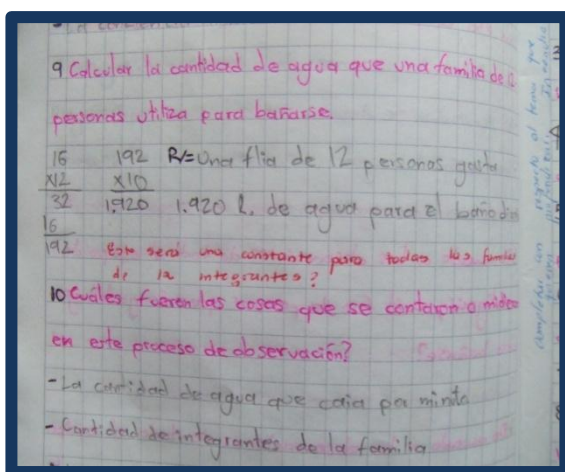 9 Calcular la cantidad de agua que una familia de
personas utiliza para bañarse.
16 192 R/= Una flia de 12 personas gasta
x12 x10
32 1.920 1.920 l. de agua para el baño
16
192 Esta será una constante para todas las
de 12 integrantes?
10 Cuáles fueron las cosas que se contaron o
en este proceso de observación?
- La cantidad de agua que caia por minuto
- Cantidad de integrantes de la familia